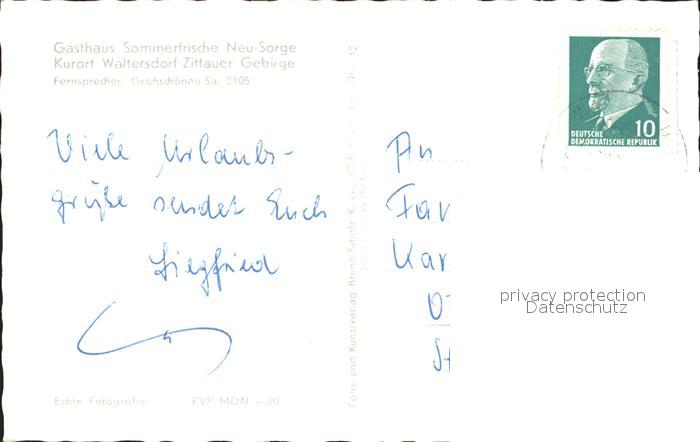 Gasthaus Sommerfrische Neu-Sorge
Kurort Waltersdorf Zittauer Gebirge
Fernsprecher: Großschönau Sa. 2105
Viele Urlaubs-
grüße sendet Euch
Siegfried
Echte Fotografie EVP MDN -.20
Foto- und Kunstverlag Bruno Scholz K.
12
DEUTSCHE 10
DEMOKRATISCHE REPUBLIK
An
Fa
Kar
privacy protection
Datenschutz